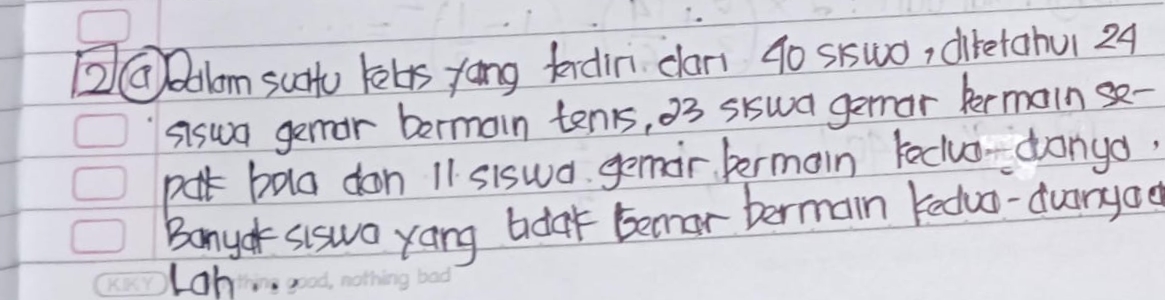 2 a Dalam suatu kelas yang terdiri dari 40 siswa, diketahui 24
siswa gemar bermain tenis, 23 siswa gemar bermain se-
pak bola dan 11 siswa gemar bermain kedua-duanya.
Banyak siswa yang tidak gemar bermain kedua-duanya ad
Lah...
KIKY thing good, nothing bad